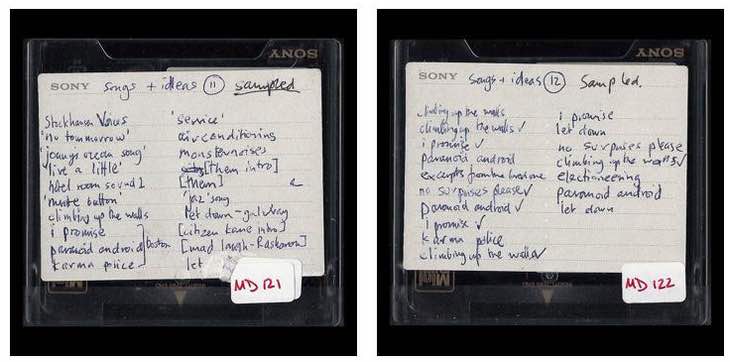 SONY
SONY songs + ideas 11 sampled
Stockhausen Voices
'no tommorrow'
'jonnys ocean song'
'live a little'
hotel room sound 1
'mute button'
climbing up the walls
i promise
paranoid android
karma police
boston
'service'
airconditioning
monsternoises
[them intro]
[them]
'jaz' song
let down - galway
[citizen kane intro]
[mad laugh -
let
MD 121
SONY
SONY songs + ideas 12 sampled.
climbing up the walls
climbing up the walls ✓
i promise ✓
paranoid android
excerpts from
no surprises please ✓
paranoid android ✓
i promise ✓
karma police
climbing up the walls ✓
i promise
let down
no surprises please
climbing up the walls ✓
electioneering
paranoid android
let down
MD 122